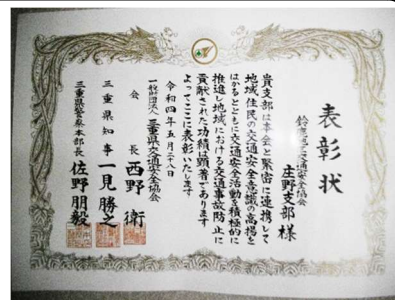 表彰状
鈴鹿地区交通安全協会
庄野支部 様
貴支部は本会と緊密に連携して
地域住民の交通安全意識の高揚を
はかるとともに交通安全活動を積極的に
推進し地域における交通事故防止に
貢献された功績は顕著であります
よってここに表彰いたします
令和四年五月二十八日
一般財団法人 三重県交通安全協会
会長 西野 衛
三重県知事 一見 勝之
三重県警察本部長 佐野 朋毅